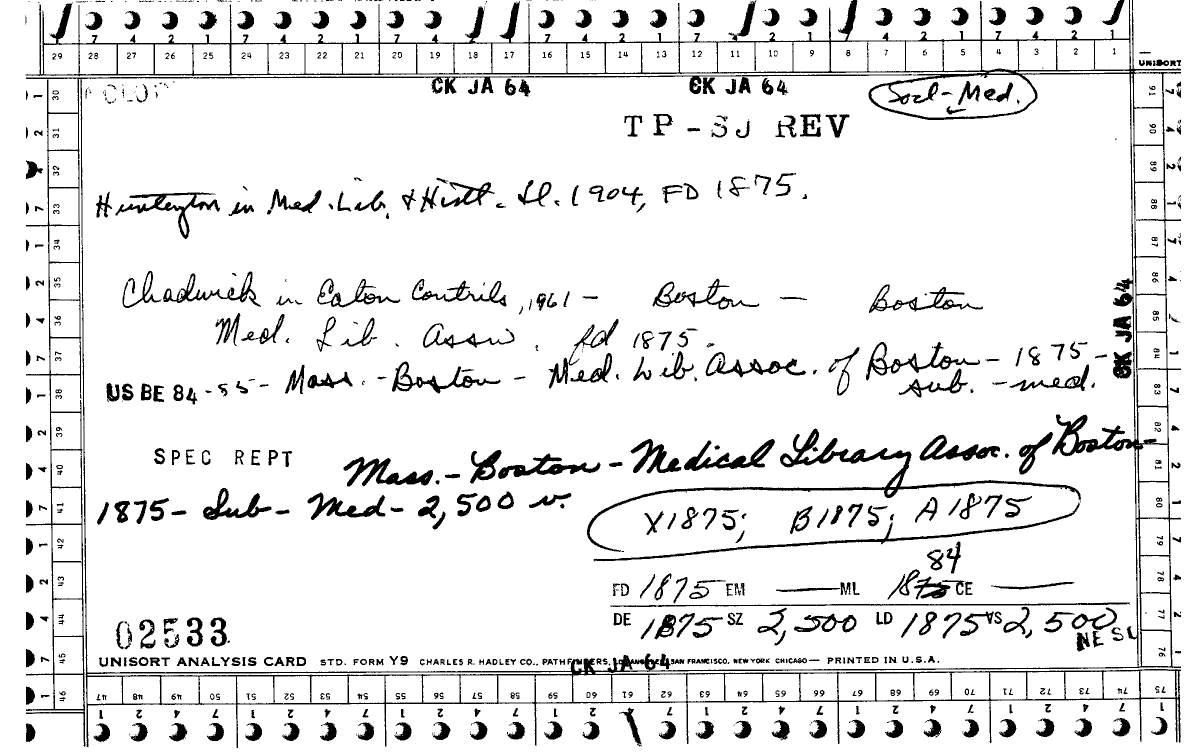 7 4 2 1 7 4 2 1 7 4 2 1 7 4 2 1 7 4 2 1 7 4 2 1
29 28 27 26 25 24 23 22 21 20 19 18 17 16 15 14 13 12 11 10 9 8 7 6 5 4 3 2 1
UNISORT
CK JA 64 CK JA 64 Socl-Med.
TP-SJ REV
Huntington in Med. Lib. & Histl. Jl. 1904, FD 1875.
Chadwick in Eaton Contribs, 1961 - Boston - Boston
Med. Lib. Assn. fd 1875.
US BE 84-55 - Mass. - Boston - Med. Lib. Assoc. of Boston - 1875 -
sub. - med.
SPEC REPT Mass. - Boston - Medical Library Assoc. of Boston -
1875 - Sub - Med - 2,500 v.
X1875; B1875; A1875
84
FD 1875 EM — ML 1875 CE —
DE 1875 SZ 2,500 LD 1875 VS 2,500
NE SL
02533
UNISORT ANALYSIS CARD STD. FORM Y9 CHARLES R. HADLEY CO., PATHFINDERS, LOS ANGELES, SAN FRANCISCO, NEW YORK CHICAGO — PRINTED IN U.S.A.
CK JA 64
CK JA 64
30 31 32 33 34 35 36 37 38 39 40 41 42 43 44 45 46
91 90 89 88 87 86 85 84 83 82 81 80 79 78 77 76 75
47 48 49 50 51 52 53 54 55 56 57 58 59 60 61 62 63 64 65 66 67 68 69 70 71 72 73 74